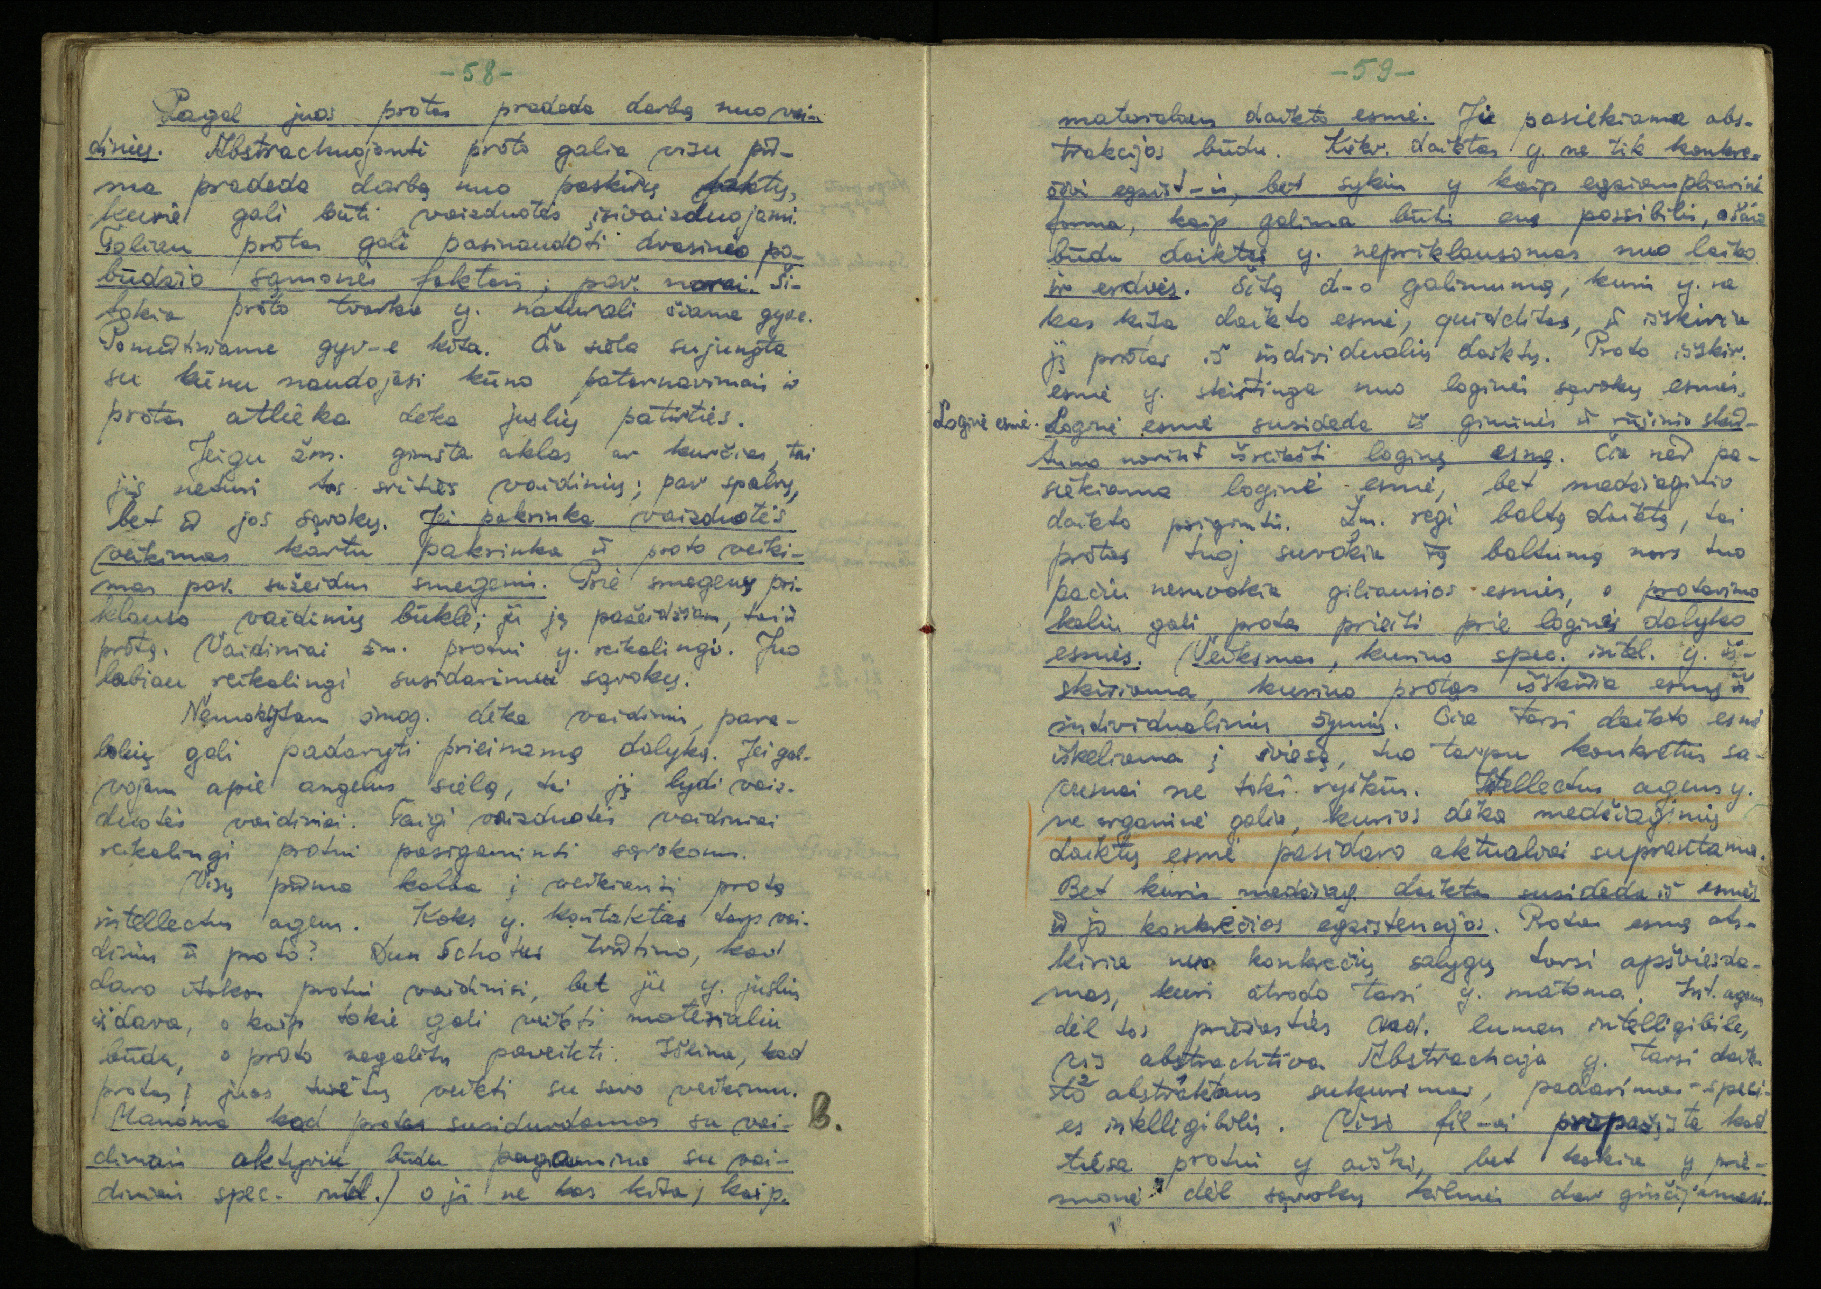 -58-
Pagal juos protas pradeda darbą nuo vai-
dinių. Abstrachuojanti proto galia visu pir-
ma pradeda darbą nuo paskirų faktų,
kurie gali būti vaizduotės įsivaizduojami.
Toliau protas gali pasinaudoti dvasinio pa-
būdžio sąmonės faktais, pav. norai. Ši-
tokia proto tvarka y. naturali šiame gyve.
Pomirtiniame gyv-e kita. Čia siela sujungta
su kūnu naudojasi kūno patarnavimais ir
protas atlieka dėka juslių patirties.
Jeigu žm. gimsta aklas ar kurčias, tai
jis neturi tos srities vaidinių; pav spalvų,
bet ir jos sąvokų. Jei pakrinka vaizduotės
veikimas kartu pakrinka ir proto veiki-
mas pav. sužeidus smegenis. Prie smegenų pri-
klauso vaidinių būklė; ji ją pažeidžiam, tai ir
protą. Vaidiniai žm. protui y. reikalingi. Juo
labiau reikalingi susidarimui sąvokų.
Nemokytam žmog. dėka vaidinių, para-
bolių gali padaryti prieinamą dalyką. Jei gal-
vojam apie angelus sielą, tai ją lydi vaiz-
duotės vaidiniai. Taigi vaizduotės vaidiniai
reikalingi protui pasigaminti sąvokoms.
Visų pirma kalba į veikiantį protą
intellectus agens. Koks y. kontaktas tarp vai-
dinių ir proto? Dun Schotus tvirtino, kad
daro įtakos protui vaidiniai, bet jie y. juslių
išdava, o kaip tokie gali veikti materialiu
būdu, o proto negalėtų paveikti. Išeina, kad
protas į juos turėtų veikti su savo veikimu.
Manoma kad protas susidurdamas su vai- B.
diniais aktyviu būdu pagamina su vai-
diniais spec. intel.) o ji ne kas kita, kaip
-59-
materialaus daikto esmė. Jie pasiekiama abs-
trakcijos būdu. Kiekv. daiktas y. ne tik konkre-
čiai egzist-is, bet sykiu y kaip egziempliarinė
forma, kaip galima būti ens possibilis, o šiuo
būdu daiktas y. nepriklausomas nuo laiko
ir erdvės. Šitą d-o galimumą, kuri y. ne
kas kita daikto esmė, quidditas, ir išskiria
ją protas iš individualių daiktų. Proto išskir.
esmė y. skirtinga nuo loginės sąvokų esmės.
Loginė esmė. Loginė esmė susideda iš giminės ir rūšinio skir-
tumo norint išreikšti loginę esmę. Čia nėr pa-
siekiama loginė esmė, bet medžiaginio
daikto prigimtis. Žm. regi baltą daiktą, tai
protas tuoj suvokia tą baltumą nors tuo
pačiu nesuvokia giliausios esmės, o protavimo
keliu gali protas prieiti prie loginės dalyko
esmės. (Veiksmas, kuriuo spec. intel. y. iš-
skiriama, kuriuo protas išskiria esmę iš
individualinių žymių. Čia tarsi daikto esmė
iškeliama į šviesą, tuo tarpu konkretus sa-
vumai ne tokie ryškūs. Intellectus agens y.
ne organinė galia, kurios dėka medžiaginių
daiktų esmė pasidaro aktualiai suprantama.
Bet kuris medžiag. daiktas susideda iš esmės
ir jo konkrečios egzistencijos. Protas esmę ats-
kiria nuo konkrečių sąlygų tarsi apšviesda-
mas, kuri atrodo tarsi y. matoma. Int. agens
dėl tos priežasties vad. lumen intelligibile,
vis abstrachtiva. Abstrachcija y. tarsi daik-
to abstraktaus sukurimas, padarimas speci-
es intelligibilis. (Visi fil-ai pripažįsta kad
tiesa protui y aiški, bet kokia y prie-
monė dėl sąvokų kilmės dar ginčijamasi.